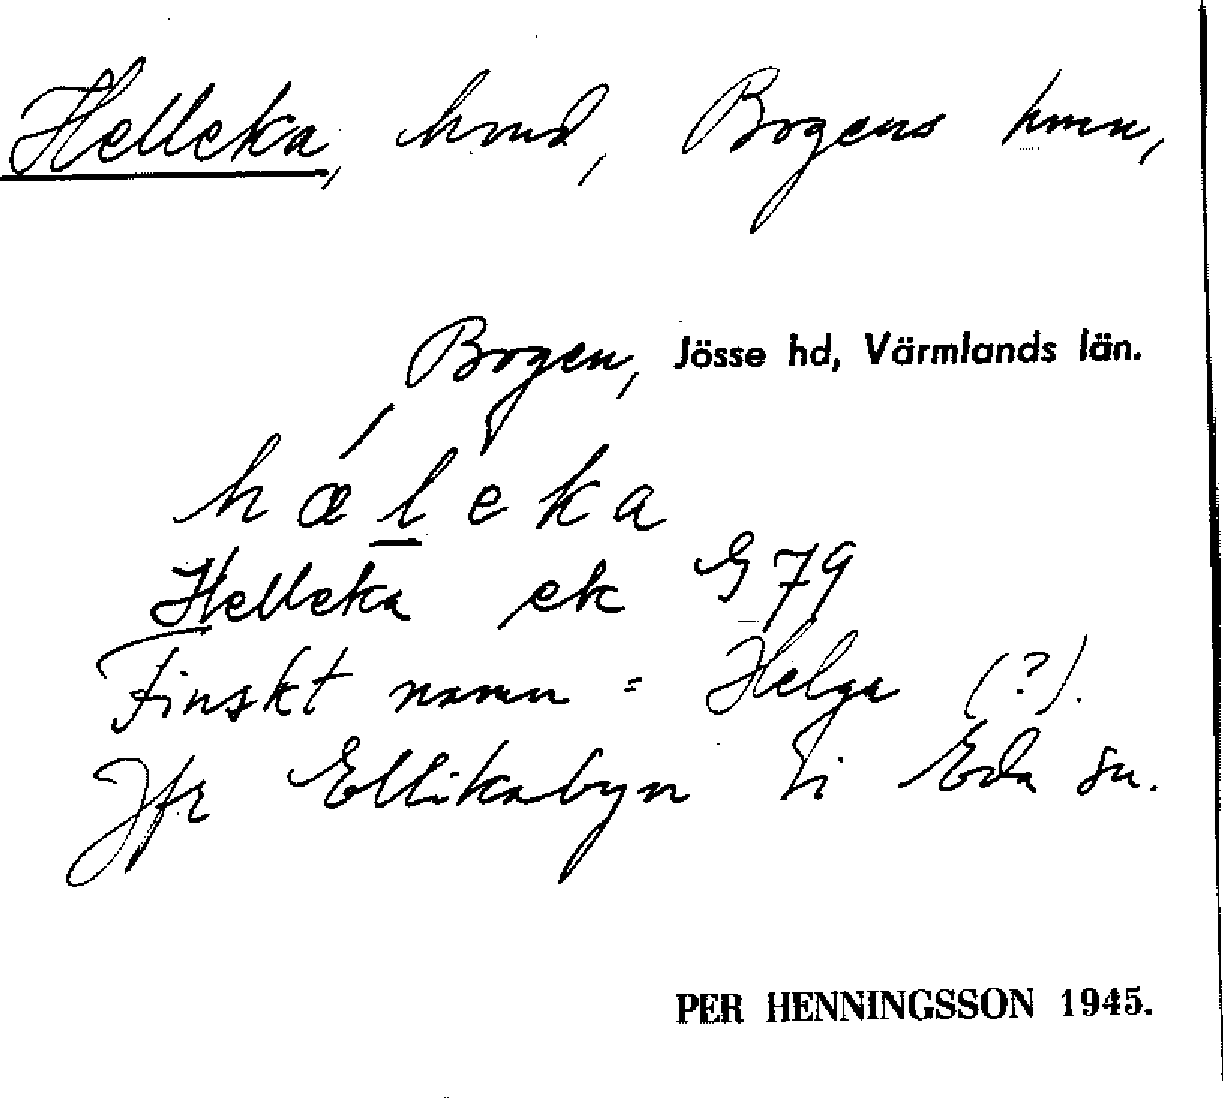 Helleka, hmd, Bogens kmn,
Bogen, Jösse hd, Värmlands län.
hæ´leka
Helleka ek G 79
Finskt namn = Helga (?).
Jfr Ellikabyn i Eda sn.
PER HENNINGSSON 1945.